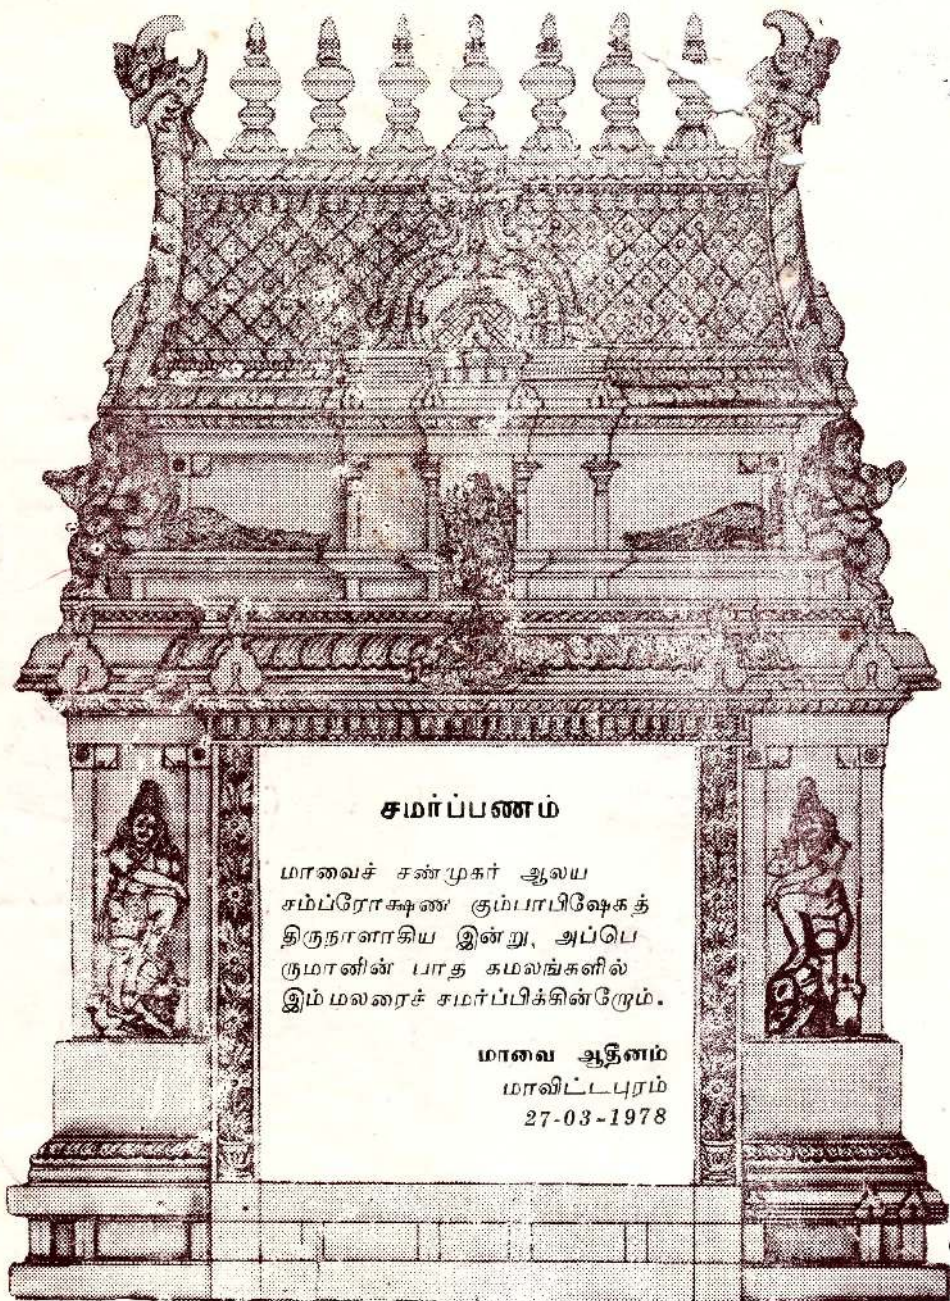 சமர்ப்பணம்
மாவைச் சண்முகர் ஆலய
சம்ப்ரோக்ஷண கும்பாபிஷேகத்
திருநாளாகிய இன்று, அப்பெ
ருமானின் பாத கமலங்களில்
இம்மலரைச் சமர்ப்பிக்கின்றோம்.
மாவை ஆதீனம்
மாவிட்டபுரம்
27-03-1978